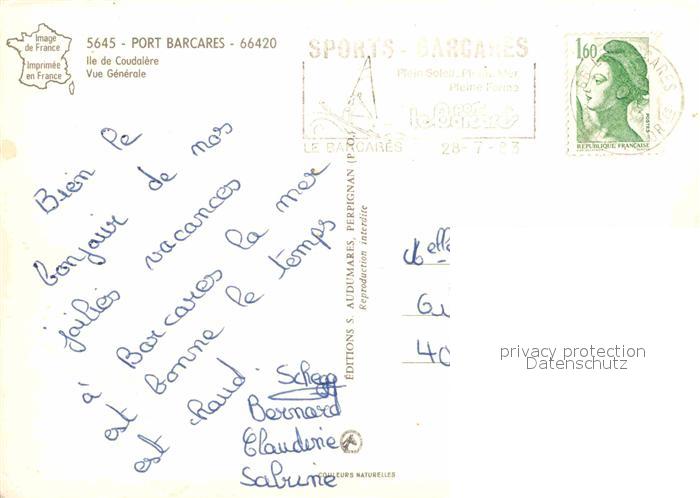 Image
de France
Imprimée
en France
5645 - PORT BARCARES - 66420
Ile de Coudalère
Vue Générale
SPORTS - BARCARES
Plein Soleil, Pleine Mer
Pleine Forme
PORT
LE BARCARÈS 28-7-83
1,60
POSTES
REPUBLIQUE FRANÇAISE
Bien le
bonjour de nos
joilies vacances
à Barcares la mer
est bonne le temps
est chaud.
Schegg
Bernard
Claudine
Sabrine
ÉDITIONS S. AUDUMARES, PERPIGNAN (P.-O.)
Reproduction interdite
COULEURS NATURELLES
Melle
40
privacy protection
Datenschutz